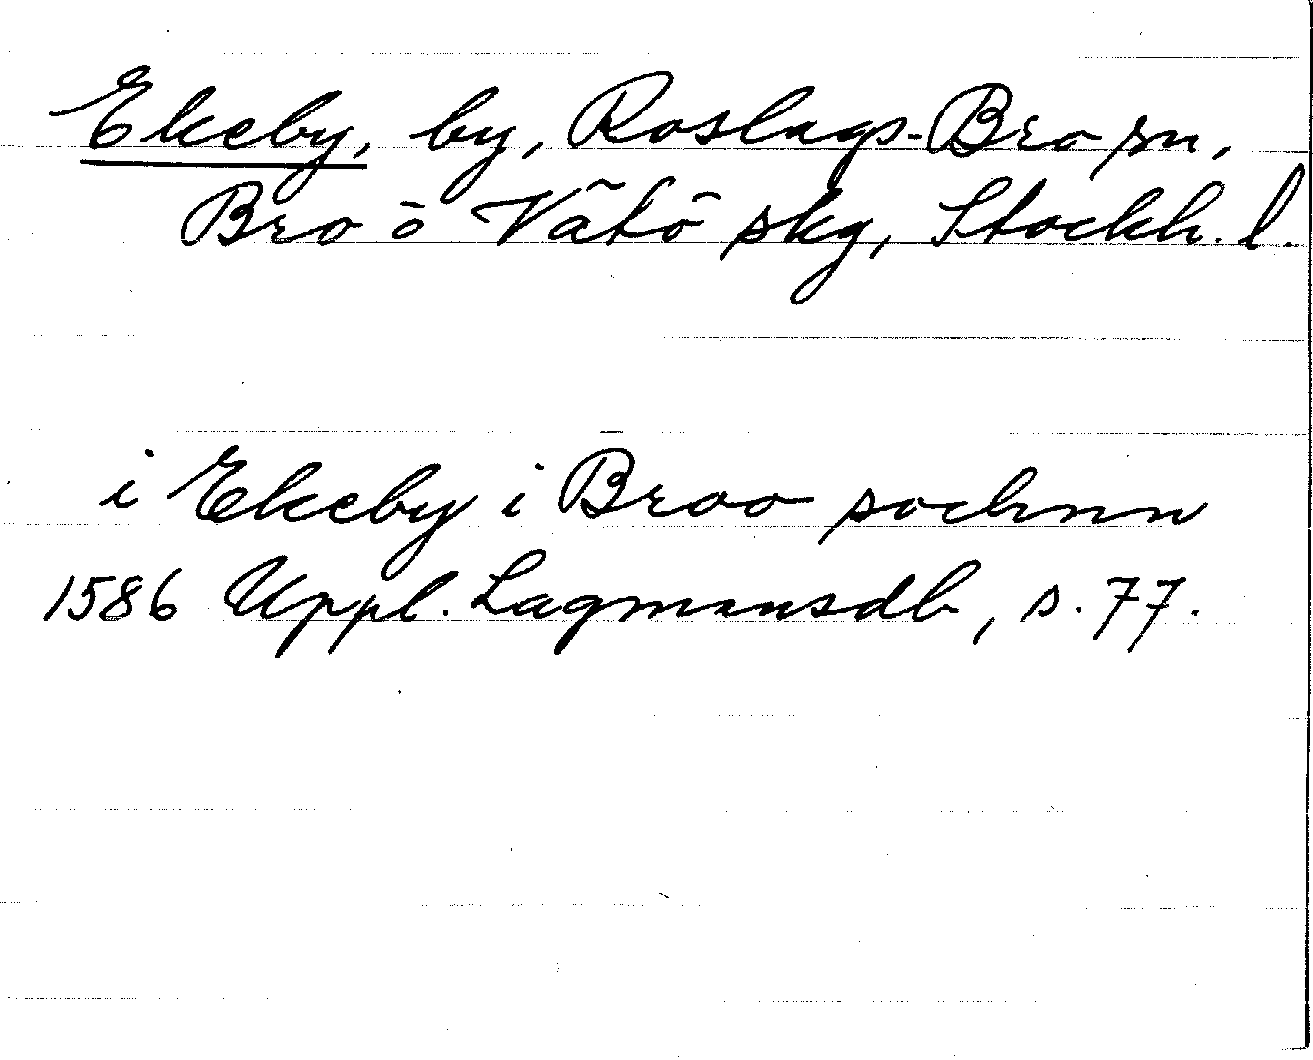 Ekeby, by, Roslags-Bro sn,
Bro o Vätö skg, Stockh. l.
i Ekeby i Broo sochnn
1586 Uppl. Lagmansdb, s. 77.